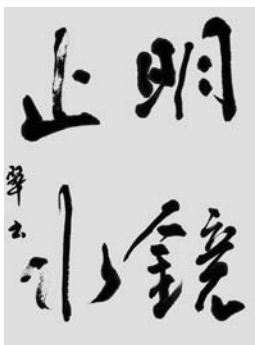 明鏡
止水
翠云